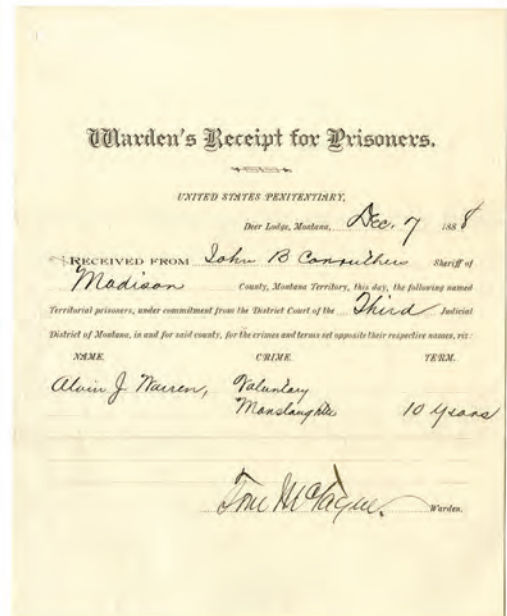 Warden's Receipt for Prisoners.
UNITED STATES PENITENTIARY,
Deer Lodge, Montana, Dec. 7 1888
RECEIVED FROM John B Carruthers Sheriff of
Madison County, Montana Territory, this day, the following named
Territorial prisoners, under commitment from the District Court of the Third Judicial
District of Montana, in and for said county, for the crimes and terms set opposite their respective names, viz:
NAME. CRIME. TERM.
Alvin J. Warren, Voluntary
Manslaughter 10 years
Tom McTague. Warden.